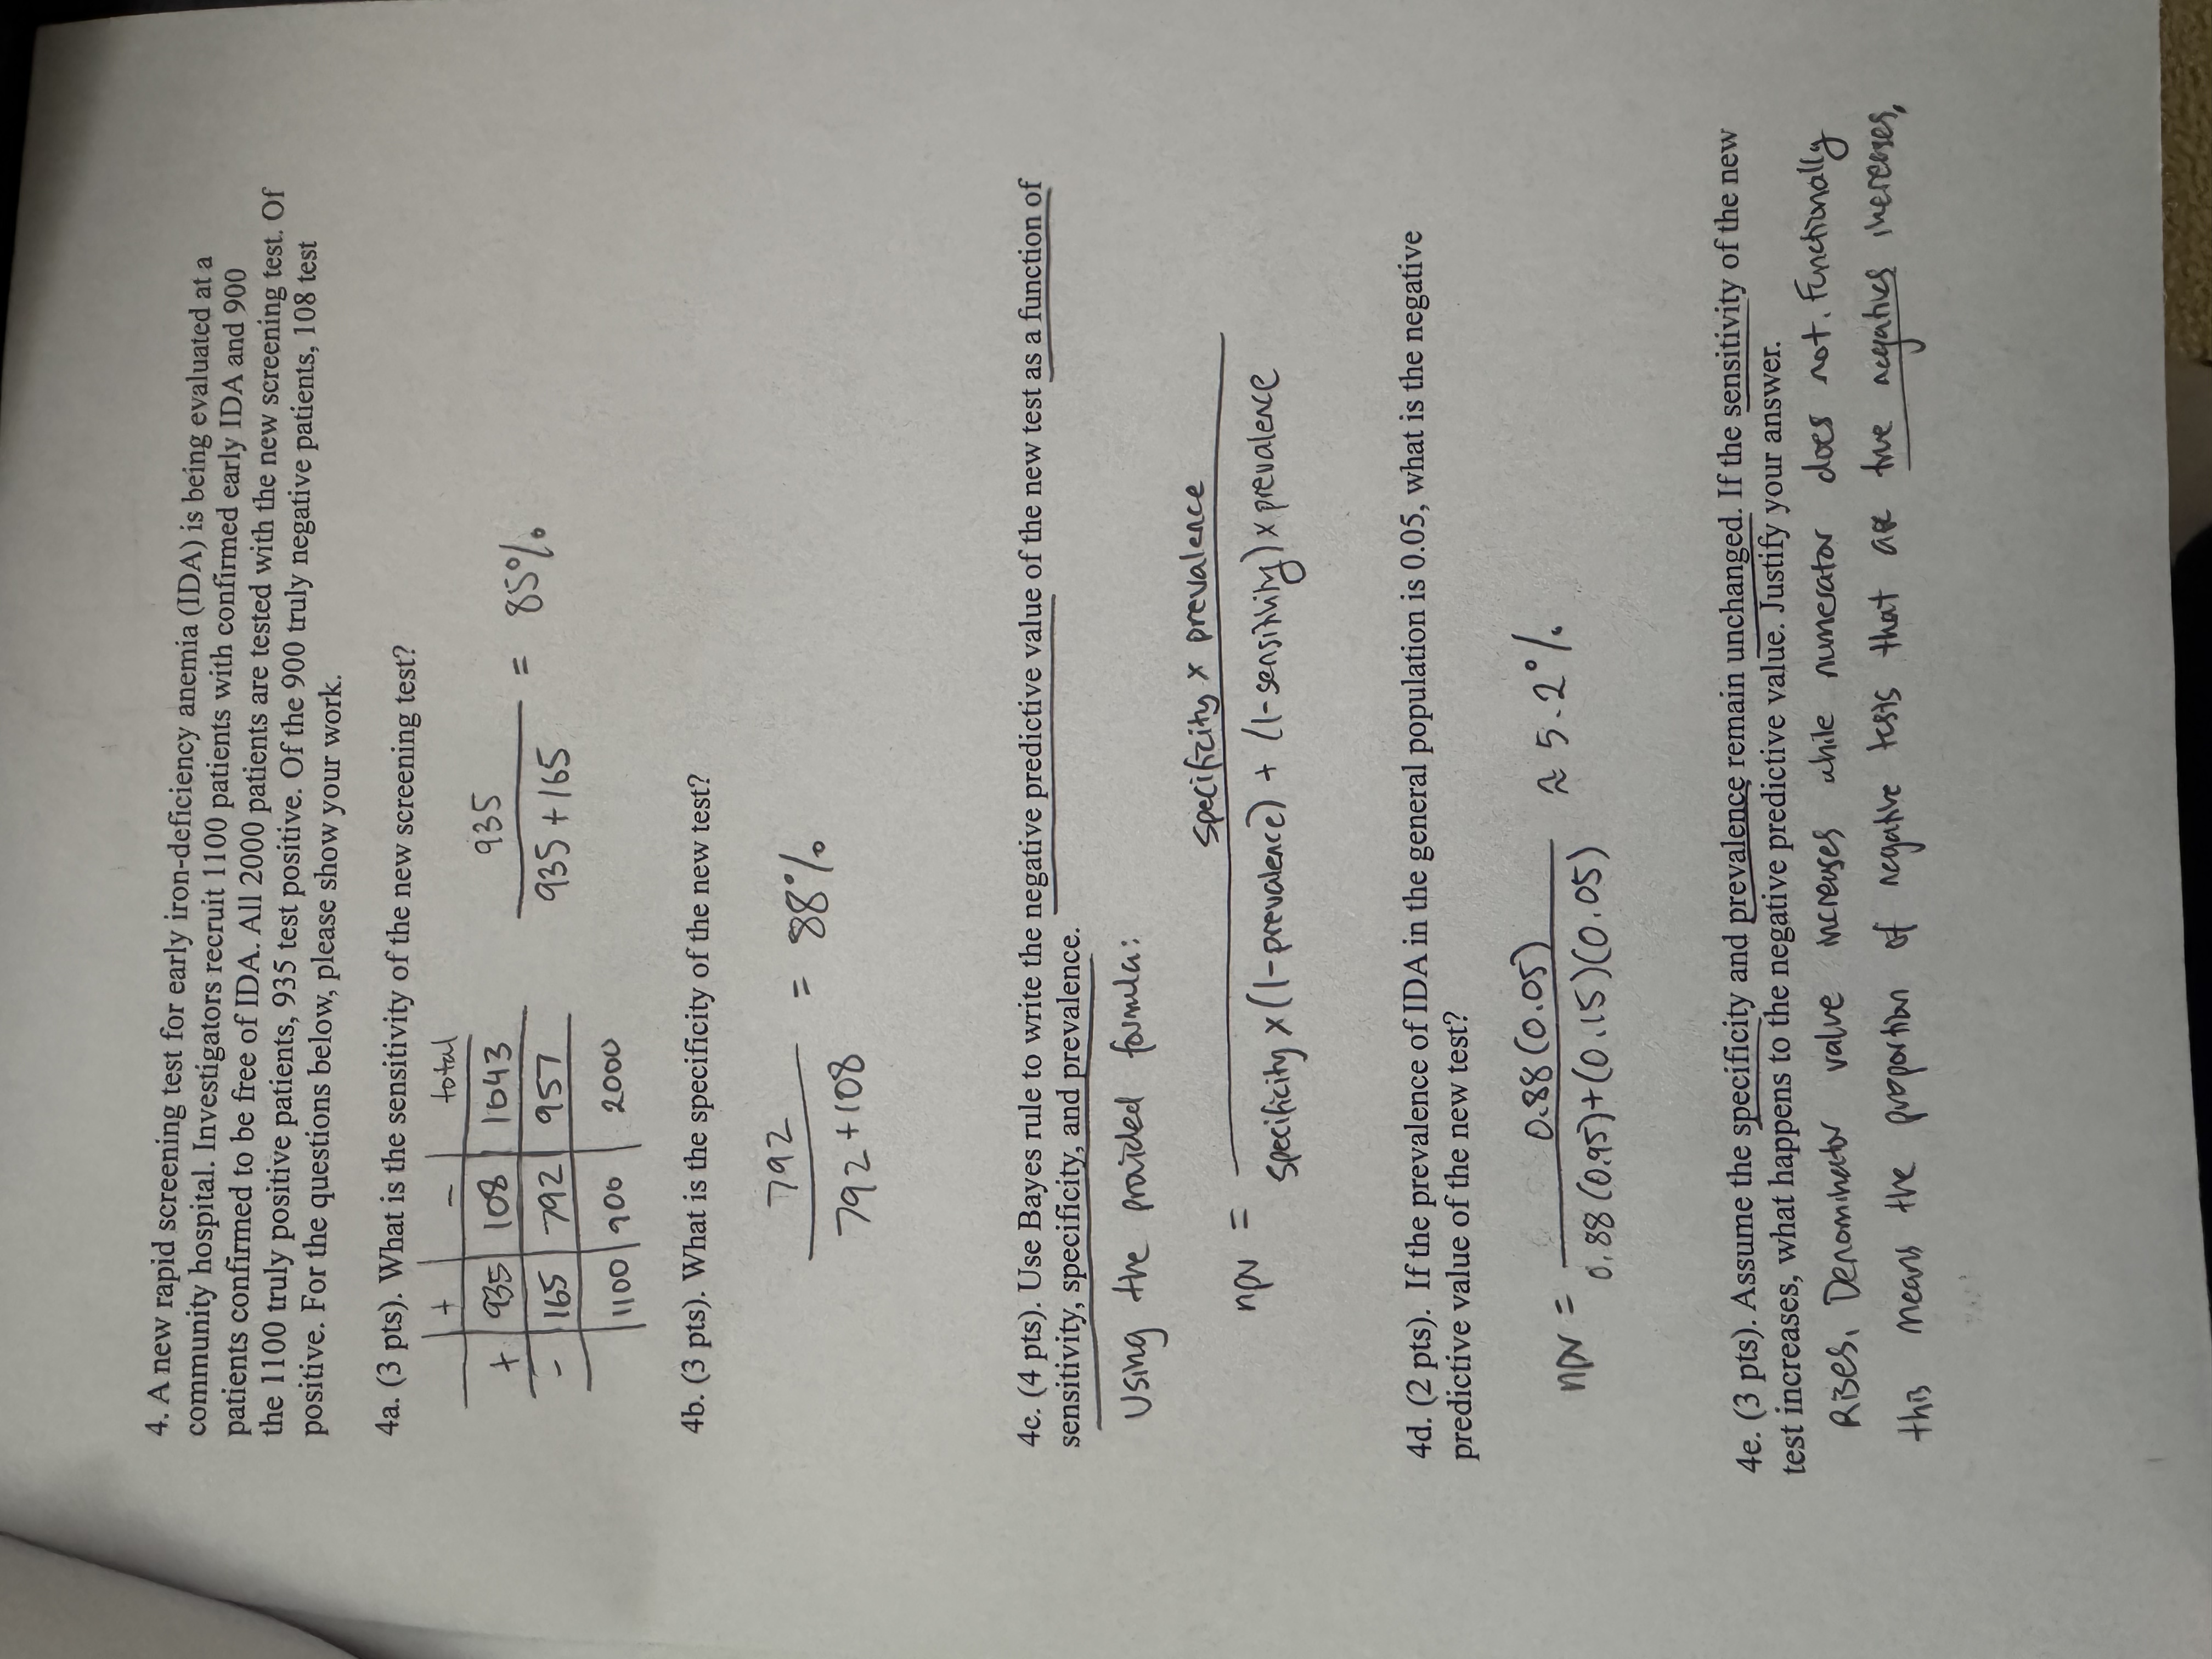 4. A new rapid screening test for early iron-deficiency anemia (IDA) is being evaluated at a
community hospital. Investigators recruit 1100 patients with confirmed early IDA and 900
patients confirmed to be free of IDA. All 2000 patients are tested with the new screening test. Of
the 1100 truly positive patients, 935 test positive. Of the 900 truly negative patients, 108 test
positive. For the questions below, please show your work.
4a. (3 pts). What is the sensitivity of the new screening test?
+ − total
+ 935 108 1043
− 165 792 957
1100 900 2000
935
935 + 165
= 85%
4b. (3 pts). What is the specificity of the new test?
792
792 + 108
= 88%
4c. (4 pts). Use Bayes rule to write the negative predictive value of the new test as a function of
sensitivity, specificity, and prevalence.
Using the provided formula:
specificity x prevalence
npv =
specificity x (1-prevalence) + (1-sensitivity) x prevalence
4d. (2 pts). If the prevalence of IDA in the general population is 0.05, what is the negative
predictive value of the new test?
0.88 (0.05)
npv = ≈ 5.2%
0.88 (0.95) + (0.15)(0.05)
4e. (3 pts). Assume the specificity and prevalence remain unchanged. If the sensitivity of the new
test increases, what happens to the negative predictive value. Justify your answer.
Rises. Denominator value increases while numerator does not. Functionally
this means the proportion of negative tests that are true negatives increases.